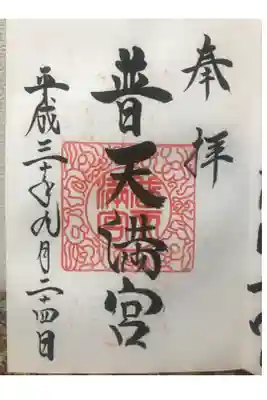 奉拝
普天満宮
平成三十年九月二十四日